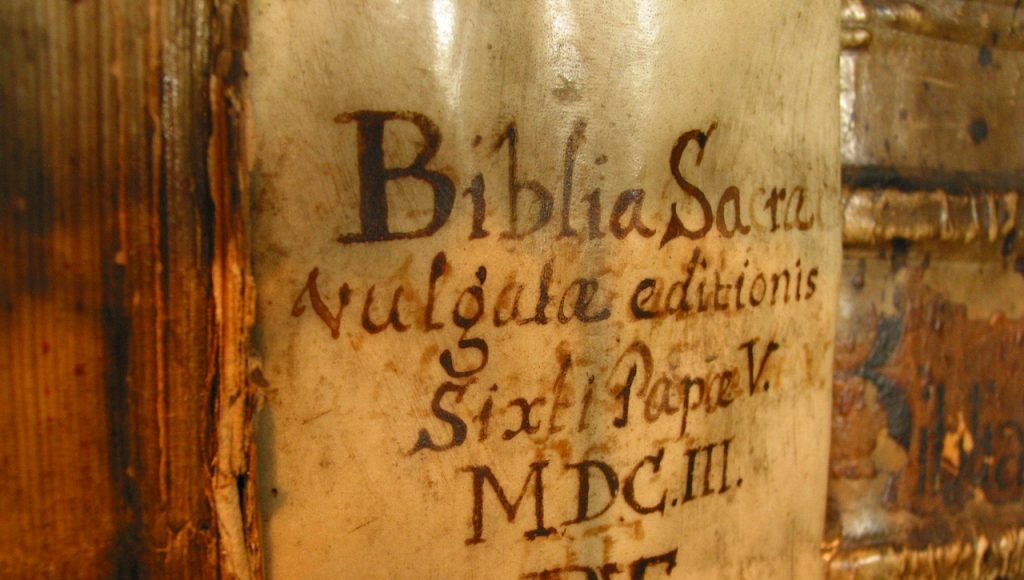 Biblia Sacra
vulgatæ editionis
Sixti Papæ V.
M.D.C.III.